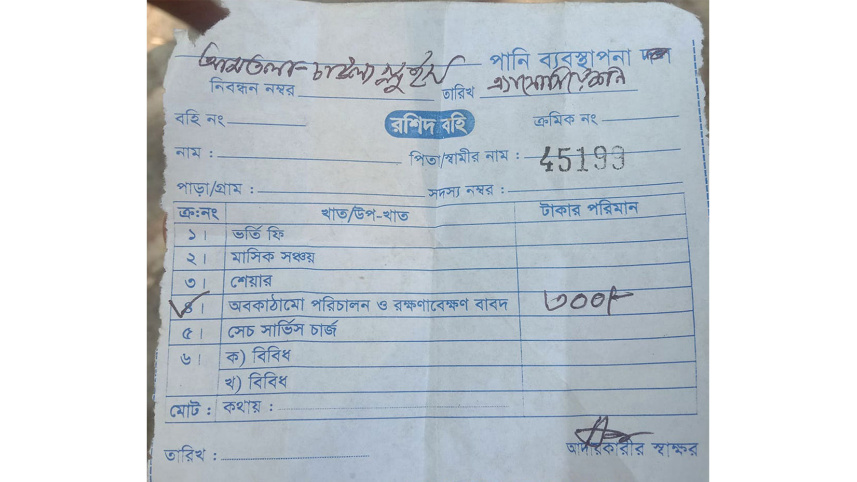 আমতলা-চাইল্যা স্লুইস পানি ব্যবস্থাপনা
এ্যাসোসিয়েশন
নিবন্ধন নম্বর তারিখ
বহি নং রশিদ বহি ক্রমিক নং
নাম : পিতা/স্বামীর নাম : 45193
পাড়া/গ্রাম : সদস্য নম্বর :
ক্র:নং খাত/উপ-খাত টাকার পরিমান
১। ভর্তি ফি
২। মাসিক সঞ্চয়
৩। শেয়ার
৪। অবকাঠামো পরিচালন ও রক্ষণাবেক্ষণ বাবদ ৩০০/-
৫। সেচ সার্ভিস চার্জ
৬। ক) বিবিধ
খ) বিবিধ
মোট : কথায় :
তারিখ : আদায়কারীর স্বাক্ষর